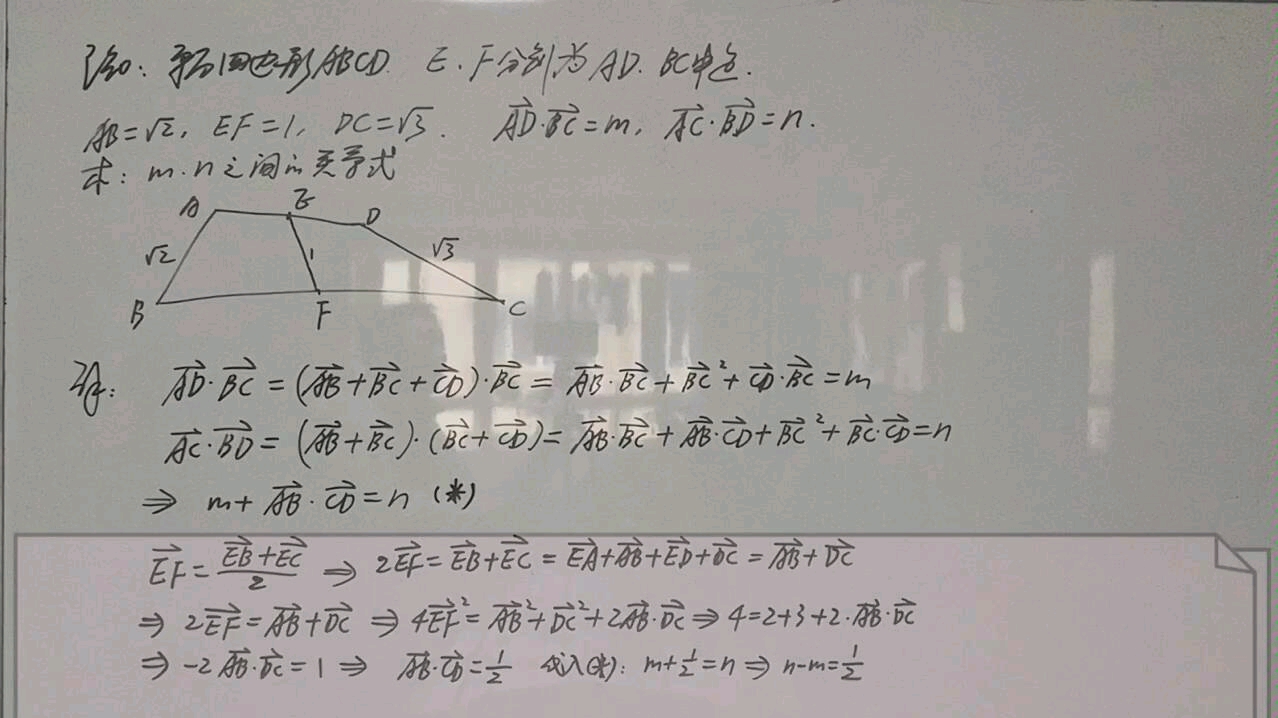 已知：平面四边形ABCD. E、F分别为AD、BC中点.
AB=√2, EF=1, DC=√3. AD→·BC→=m, AC→·BD→=n.
求：m、n之间的关系式
A E D
√2 1 √3
B F C
解： AD→·BC→=(AB→+BC→+CD→)·BC→=AB→·BC→+BC→²+CD→·BC→=m
AC→·BD→=(AB→+BC→)·(BC→+CD→)=AB→·BC→+AB→·CD→+BC→²+BC→·CD→=n
⇒ m+AB→·CD→=n (*)
EF→=(EB→+EC→)/2 ⇒ 2EF→=EB→+EC→=EA→+AB→+ED→+DC→=AB→+DC→
⇒ 2EF→=AB→+DC→ ⇒ 4EF→²=AB→²+DC→²+2AB→·DC→ ⇒ 4=2+3+2·AB→·DC→
⇒ -2AB→·DC→=1 ⇒ AB→·CD→=1/2 代入(*)：m+1/2=n ⇒ n-m=1/2